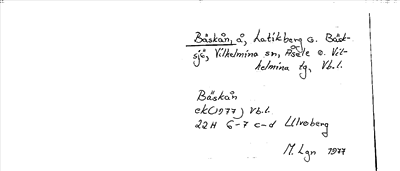 Båskån, å, Latikberg o. Båst-
sjö, Vilhelmina sn, Åsele o. Vil-
helmina tg, Vb.l.
Bäskån
ek(1977) Vb.l.
22H 6-7 c-d Ulvoberg
M. Lgn 1977